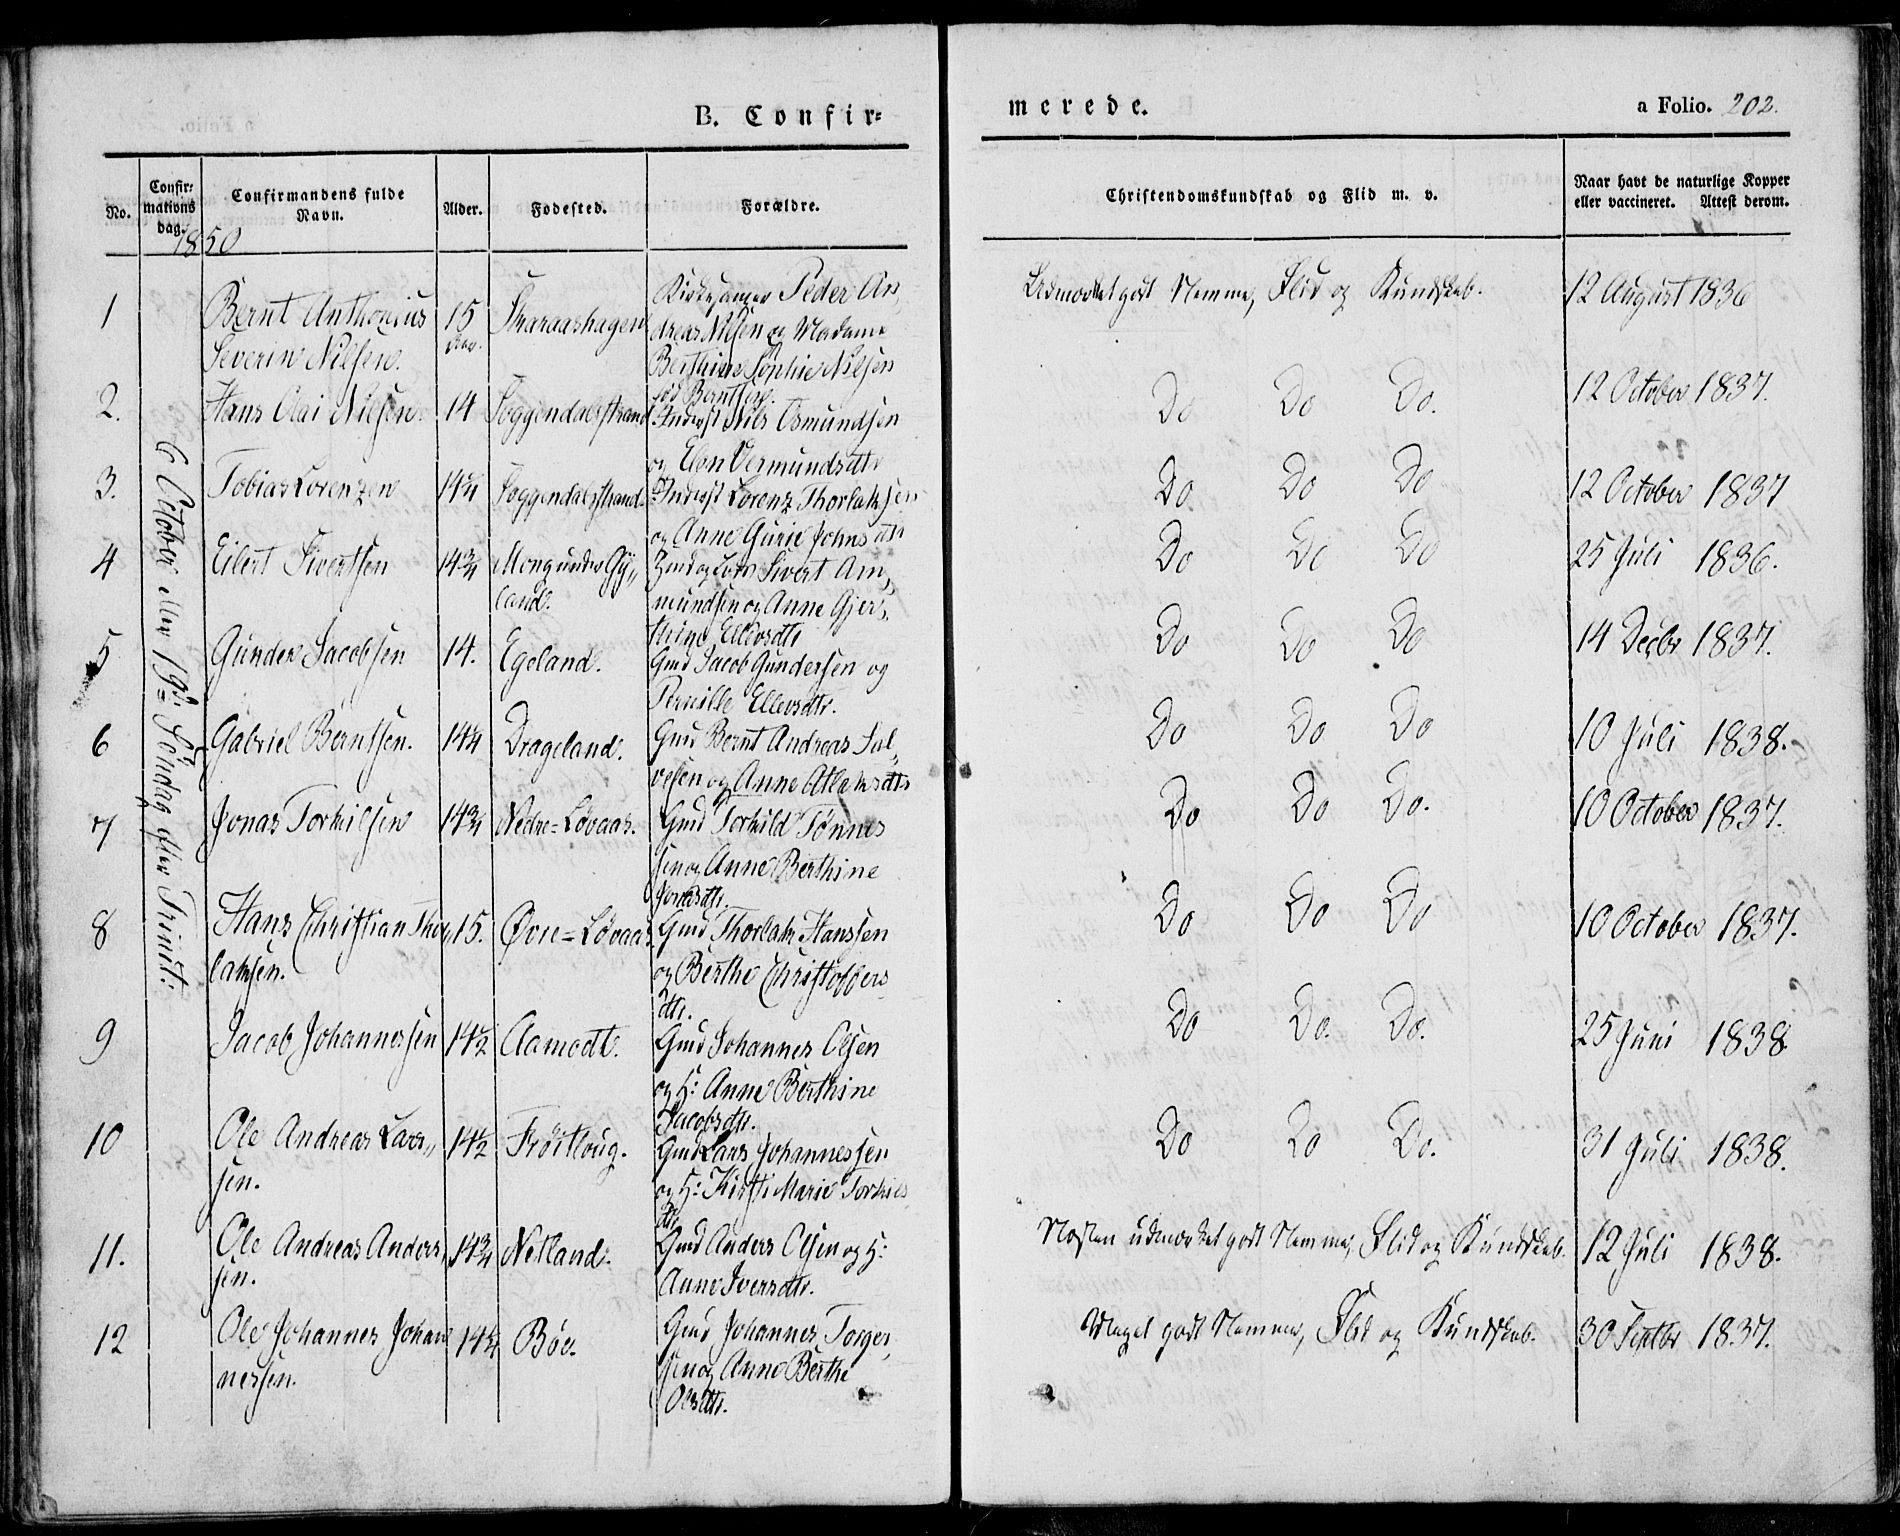 B. Confir-
No.
Confir-
mations
dag.
Confirmandens fulde
Navn.
Alder.
Fødested.
Forældre.
1850
6 October eller 19de Søndag efter Trinit:
1
Bernt Anthonius
Severin Nilsen.
15
Skaraashagen
Kirkesanger Peder An„
dreas Nilsen og Madame
Berthine Sophie Nilsen
fød Berntsen.
2.
Hans Olai Nilsen
14
Soggendalsstrand
Inderst Nils Osmundsen
og Elen Vermundsdtr
3.
Tobias Lorenzen
14¼
Soggendalsstrand
Inderst Lorenz Thorlaksen
og Anne Gurie Johnsdtr
4
Eilert Sivertsen
14¾
Mong under Gy„
land.
Sivert Am„
mundsen og Anne Gjer„
thine Ellevsdtr
5
Gunder Jacobsen
14.
Egeland.
Gmd Jacob Gundersen og
Pernille Ellevsdtr.
6
Gabriel Berntsen.
14¼
Drageland.
Gmd Bernt Andreas Sal„
vesen og Anne Atlaksdtr
7
Jonas Torkilsen
14¾
Nedre=Løvaas.
Gmd Torkild Tønnes
sen og Anne Berthine
Jonasdtr.
8
Hans Christian Thor„
laksen.
15.
Øvre=Løvaas.
Gmd Thorlak Hanssen
og Berthe Christoffers
dtr.
9
Jacob Johannessen
14½
Aamodt.
Gmd Johannes Olsen
og H: Anne Berthine
Jacobsdtr.
10
Ole Andreas Lars„
sen.
14½
Frøitloug.
Gmd Lars Johannessen
og H: Kirsti Marie Torkils
dtr
11.
Ole Andreas Anders„
sen.
14¾
Netland.
Gmd Anders Olsen og H:
Anne Iversdtr.
12
Ole Johannes Johan
nessen.
14¾
Bøe.
Gmd Johannes Torger„
sen og Anne Berthe
Olsdtr.
merede.
a Folio. 202.
Christendomskundskab og Flid m. v.
Naar havt de naturlige Kopper
eller vaccineret. Attest derom.
Udmærket godt Nemme, Flid og Kundskab.
12 August 1836
Do Do Do.
12 October 1837.
Do Do Do
12 October 1837
Do Do Do
25 Juli 1836.
Do Do Do
14 Decbr 1837.
Do Do Do
10 Juli 1838.
Do Do Do.
10 October 1837.
Do Do Do
10 October 1837.
Do Do. Do.
25 Juni 1838
Do Do Do.
31 Juli 1838.
Næsten udmærket godt Nemme, Flid og Kundskab.
12 Juli 1838.
Meget godt Nemme, Flid og Kundskab.
30 Septbr 1837.